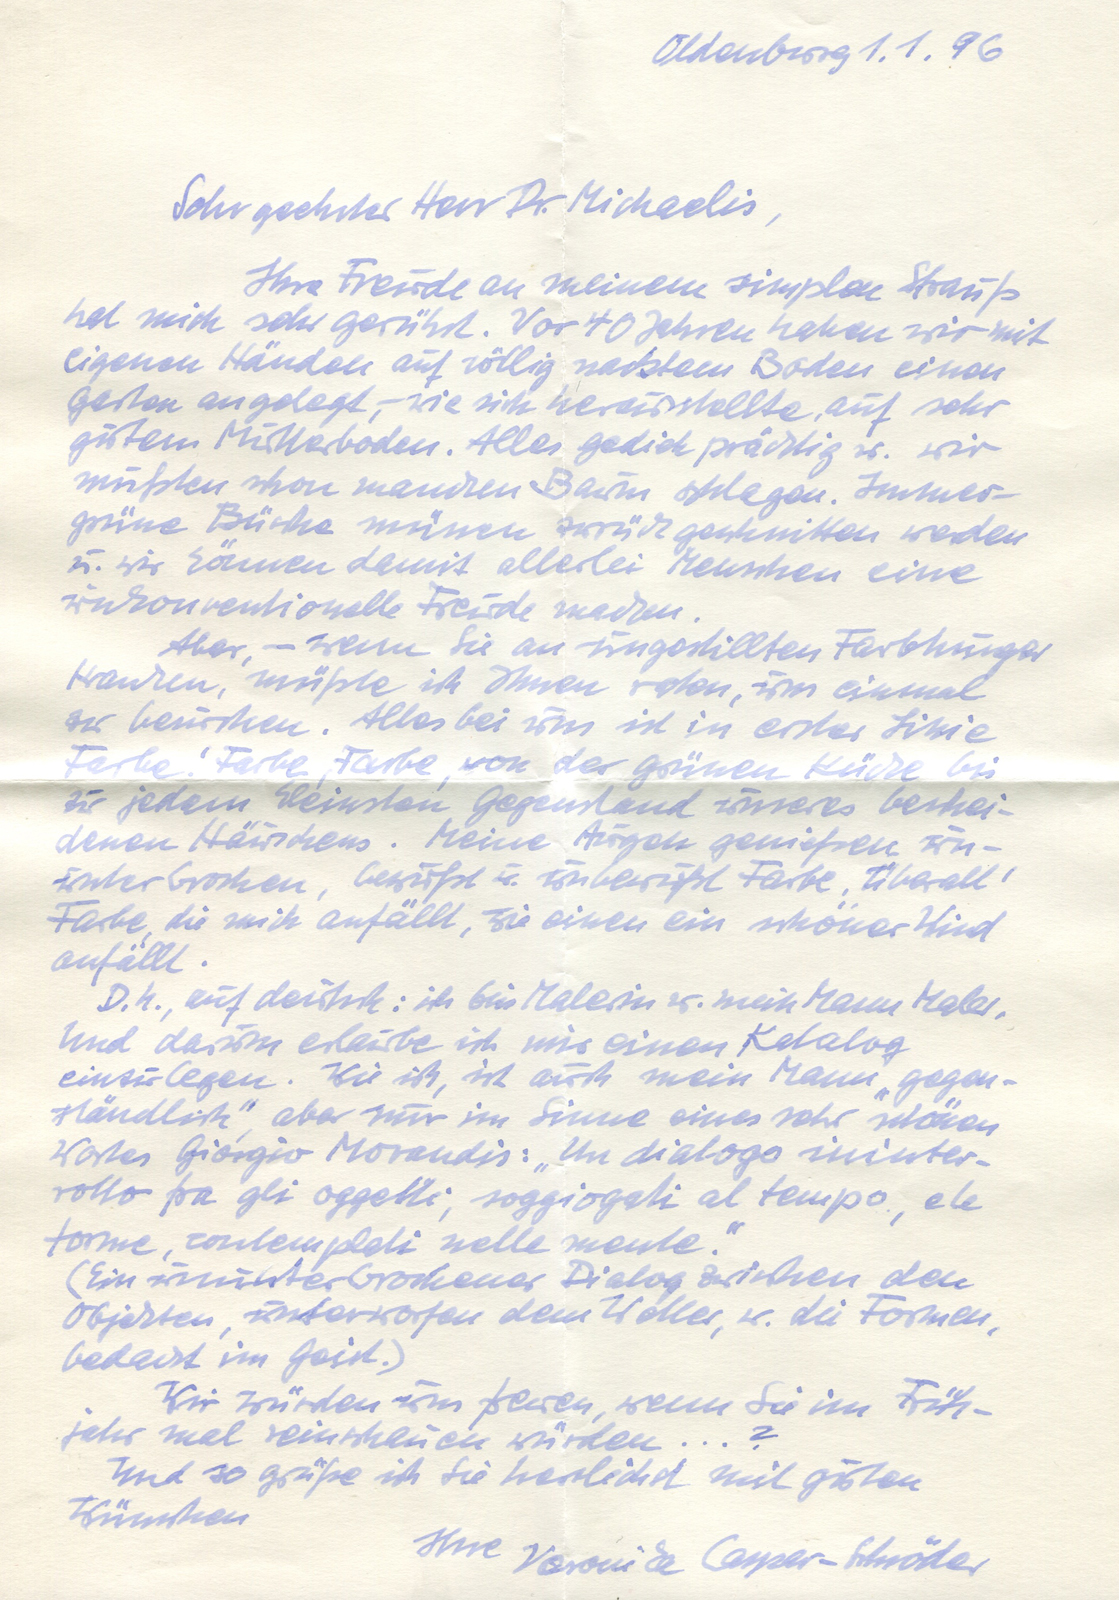 Oldenburg 1.1.96
Sehr geehrter Herr Dr. Michaelis,
Ihre Freude an meinem simplen Strauß
hat mich sehr gerührt. Vor 40 Jahren haben wir mit
eigenen Händen auf völlig nacktem Boden einen
Garten angelegt, – wie sich herausstellte, auf sehr
gutem Mutterboden. Alles gedieh prächtig u. wir
mußten schon manchen Baum schlagen. Immer-
grüne Büsche müssen zurückgeschnitten werden
u. wir können damit allerlei Menschen eine
unkonventionelle Freude machen.
Aber, – wenn Sie an ungestillten Farbhunger
kranken, müßte ich Ihnen raten, uns einmal
zu besuchen. Alles bei uns ist in erster Linie
Farbe! Farbe, Farbe, von der grünen Küche bis
zu jedem kleinsten Gegenstand unseres beschei-
denen Häuschens. Meine Augen genießen un-
unterbrochen, bewußt u. unbewußt Farbe, überall!
Farbe, die mich anfällt, wie einen ein schöner Wind
anfällt.
D.h., auf deutsch: ich bin Malerin u. mein Mann Maler.
Und darum erlaube ich mir einen Katalog
einzulegen. Wie ich, ist auch mein Mann „gegen-
ständlich", aber nur im Sinne eines sehr schönen
Wortes Giorgio Morandis: „Un dialogo ininter-
rotto fra gli oggetti, soggiogati al tempo, e le
forme, contemplati nelle mente."
(Ein ununterbrochener Dialog zwischen den
Objekten, unterworfen dem Wetter, u. die Formen,
bedacht im Geist.)
Wir würden uns freuen, wenn Sie im Früh-
jahr mal reinschauen würden ... ?
Und so grüße ich Sie herzlichst mit guten
Wünschen
Ihre Veronika Caspar-Schröder